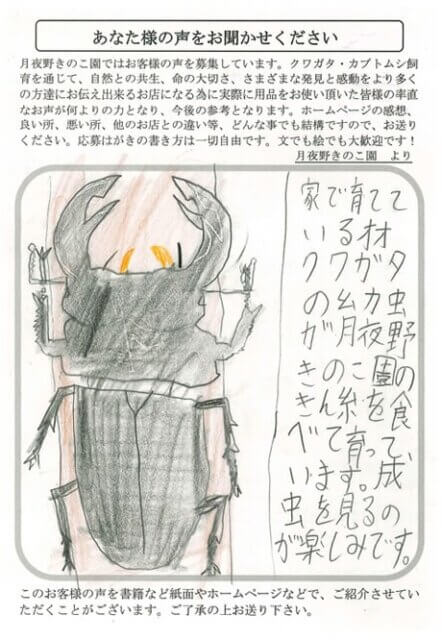 あなた様の声をお聞かせください
月夜野きのこ園ではお客様の声を募集しています。クワガタ・カブトムシ飼
育を通じて、自然との共生、命の大切さ、さまざまな発見と感動をより多く
の方達にお伝え出来るお店になる為に実際に用品をお使い頂いた皆様の率直
なお声が何よりの力となり、今後の参考となります。ホームページの感想、
良い所、悪い所、他のお店との違い等、どんな事でも結構ですので、お送り
ください。応募はがきの書き方は一切自由です。文でも絵でも大歓迎です!
月夜野きのこ園　より
家で育てて
いるオオ
クワガタ
の幼虫
が月夜野
きのこ園の
きん糸を食
べて育って
います。成
虫を見るの
が楽しみです。
このお客様の声を書籍など紙面やホームページなどで、ご紹介させてい
ただくことがございます。ご了承の上お送り下さい。